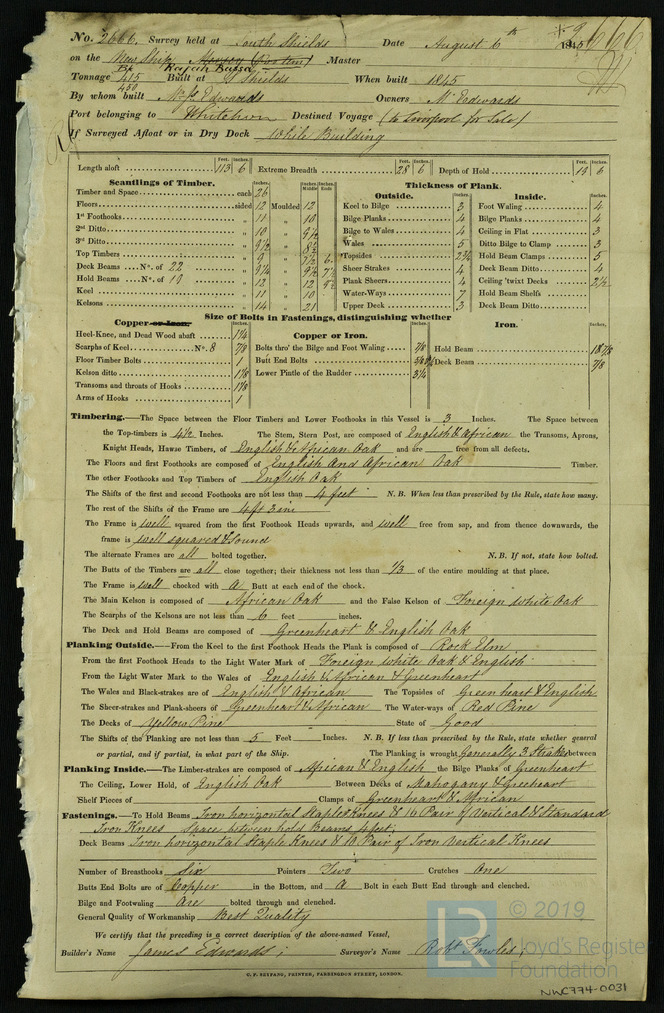 No. 2666. Survey held at South Shields Date August 6th 1845
on the New Ship Master
Bk Rajah Bassa
Tonnage 415 Built at S Shields When built 1845
430
By whom built Mr Js Edwards Owners Mr Edwards
Port belonging to Whitehvn Destined Voyage (to Liverpool for Sale)
If Surveyed Afloat or in Dry Dock While Building
Feet. Inches. Feet. Inches. Feet. Inches.
Length aloft 113 6 Extreme Breadth 28 6 Depth of Hold 18 6
Scantlings of Timber. Inches. Inches Middle Inches Ends
Timber and Space each 26
Floors sided 12 Moulded 12
1st Foothooks " 11 " 10
2nd Ditto " 10 " 9½
3rd Ditto " 9½ " 8½
Top Timbers " 9 " 7½ 6
Deck Beams No. of 22 " 9¼ " 9½ 7½
Hold Beams No. of 19 " 12 " 12 9½
Keel " 11 " 10
Kelsons " 14 " 21
Thickness of Plank.
Outside. Inches. Inside. Inches.
Keel to Bilge 3 Foot Waling 4
Bilge Planks 4 Bilge Planks 4
Bilge to Wales 4 Ceiling in Flat 3
Wales 5 Ditto Bilge to Clamp 3
Topsides 2¾ Hold Beam Clamps 5
Sheer Strakes 4 Deck Beam Ditto 4
Plank Sheers 4 Ceiling 'twixt Decks 2½
Water-Ways 7 Hold Beam Shelfs
Upper Deck 3 Deck Beam Ditto
Size of Bolts in Fastenings, distinguishing whether
Copper or Iron. Inches.
Heel-Knee, and Dead Wood abaft 1¼
Scarphs of Keel No. 8 7/8
Floor Timber Bolts 1
Kelson ditto 1 1/8
Transoms and throats of Hooks 1 1/8
Arms of Hooks 1
Copper or Iron. Inches.
Bolts thro' the Bilge and Foot Waling 7/8
Butt End Bolts
Lower Pintle of the Rudder 3¼
Iron. Inches.
Hold Beam 1 & 7/8
Deck Beam 7/8
Timbering.—The Space between the Floor Timbers and Lower Foothooks in this Vessel is 3 Inches. The Space between
the Top-timbers is 4½ Inches. The Stem, Stern Post, are composed of English & African the Transoms, Aprons,
Knight Heads, Hawse Timbers, of English & African Oak and are free from all defects.
The Floors and first Foothooks are composed of English And African Oak Timber.
The other Foothooks and Top Timbers of English Oak
The Shifts of the first and second Foothooks are not less than 4 feet N. B. When less than prescribed by the Rule, state how many.
The rest of the Shifts of the Frame are 4 ft 3 in
The Frame is well squared from the first Foothook Heads upwards, and well free from sap, and from thence downwards, the
frame is well squared & Sound
The alternate Frames are all bolted together. N. B. If not, state how bolted.
The Butts of the Timbers are all close together; their thickness not less than 1/3 of the entire moulding at that place.
The Frame is well chocked with A Butt at each end of the chock.
The Main Kelson is composed of African Oak and the False Kelson of Foreign White Oak
The Scarphs of the Kelsons are not less than 6 feet inches.
The Deck and Hold Beams are composed of Greenheart & English Oak
Planking Outside.—From the Keel to the first Foothook Heads the Plank is composed of Rock Elm
From the first Foothook Heads to the Light Water Mark of Foreign white Oak & English
From the Light Water Mark to the Wales of English & African & Greenheart
The Wales and Black-strakes are of English & African The Topsides of Greenheart & English
The Sheer-strakes and Plank-sheers of Greenheart & African The Water-ways of Red Pine
The Decks of Yellow Pine State of Good
The Shifts of the Planking are not less than 5 Feet Inches. N. B. If less than prescribed by the Rule, state whether general
or partial, and if partial, in what part of the Ship. The Planking is wrought Generally 3 Strakes between
Planking Inside.—The Limber-strakes are composed of African & English the Bilge Planks of Greenheart
The Ceiling, Lower Hold, of English Oak Between Decks of Mahogany & Greenheart
Shelf Pieces of Clamps of Greenheart & African
Fastenings.—To Hold Beams Iron horizontal Staple Knees & 16 Pair of Vertical & Standard
Iron Knees Space between hold Beams 4 feet;
Deck Beams Iron horizontal Staple Knees & 10 Pair of Iron Vertical Knees
Number of Breasthooks Six Pointers Two Crutches One
Butts End Bolts are of Copper in the Bottom, and A Bolt in each Butt End through and clenched.
Bilge and Footwaling Are bolted through and clenched.
General Quality of Workmanship Best Quality
We certify that the preceding is a correct description of the above-named Vessel,
Builder's Name James Edwards; Surveyor's Name Robt Fowles;
C. F. SEYFANG, PRINTER, FARRINGDON STREET, LONDON.
LR © 2019
Lloyd's Register
Foundation
NWC774-0031